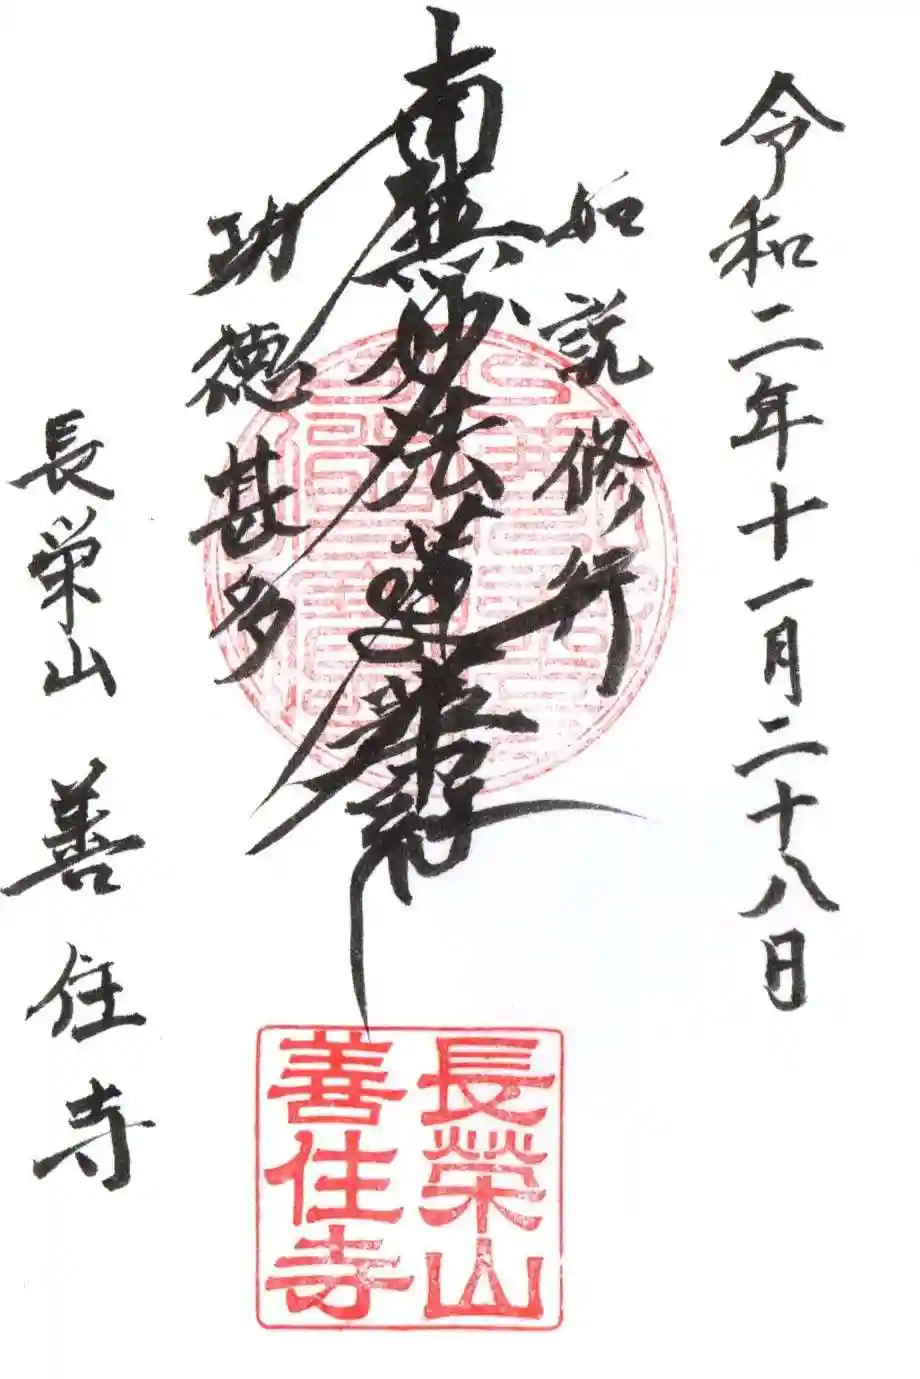 令和二年十一月二十八日
如説修行
南無妙法蓮華経
功徳甚多
長栄山 善住寺
長榮山
善住寺